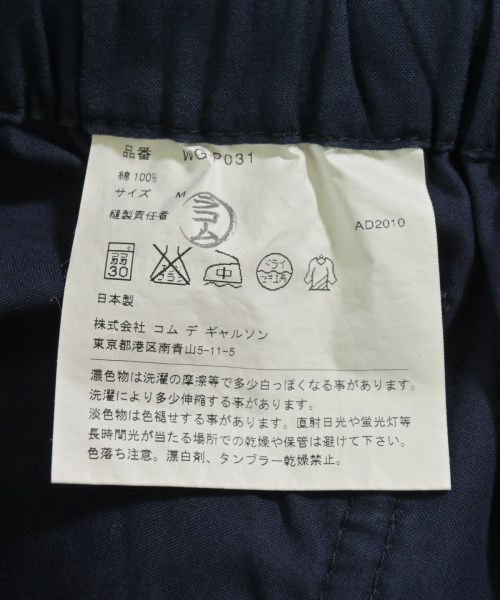 品番 WG-P031
綿 100%
サイズ M
縫製責任者 コム
AD2010
弱 30 エンソ サラシ 中 ドライ セキユ系
日本製
株式会社 コム デ ギャルソン
東京都港区南青山5-11-5
濃色物は洗濯の摩擦等で多少白っぽくなる事があります。
洗濯により多少伸縮する事があります。
淡色物は色褪せする事があります。直射日光や蛍光灯等
長時間光が当たる場所での乾燥や保管は避けて下さい。
色落ち注意。漂白剤、タンブラー乾燥禁止。